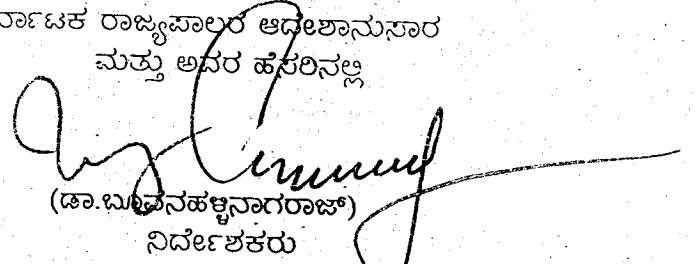 ರ್ನಾಟಕ ರಾಜ್ಯಪಾಲರ ಆದೇಶಾನುಸಾರ
ಮತ್ತು ಅವರ ಹೆಸರಿನಲ್ಲಿ
(ಡಾ.ಬೂವನಹಳ್ಳಿನಾಗರಾಜ್)
ನಿರ್ದೇಶಕರು